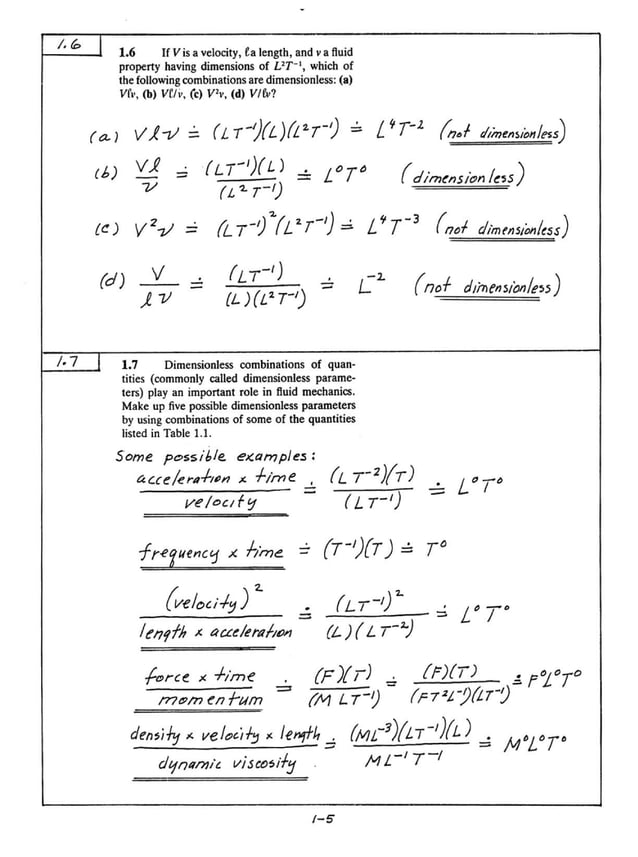 1.6
1.6 If V is a velocity, ℓ a length, and ν a fluid
property having dimensions of L²T⁻¹, which of
the following combinations are dimensionless: (a)
Vℓν, (b) Vℓ/ν, (c) V²ν, (d) V/ℓν?
(a) Vℓν ≐ (LT⁻¹)(L)(L²T⁻¹) ≐ L⁴T⁻² (not dimensionless)
(b) Vℓ/ν ≐ (LT⁻¹)(L)/(L²T⁻¹) ≐ L⁰T⁰ (dimensionless)
(c) V²ν ≐ (LT⁻¹)²(L²T⁻¹) ≐ L⁴T⁻³ (not dimensionless)
(d) V/ℓν ≐ (LT⁻¹)/(L)(L²T⁻¹) ≐ L⁻² (not dimensionless)
1.7
1.7 Dimensionless combinations of quan-
tities (commonly called dimensionless parame-
ters) play an important role in fluid mechanics.
Make up five possible dimensionless parameters
by using combinations of some of the quantities
listed in Table 1.1.
Some possible examples:
acceleration x time / velocity ≐ (LT⁻²)(T)/(LT⁻¹) ≐ L⁰T⁰
frequency x time ≐ (T⁻¹)(T) ≐ T⁰
(velocity)²/length x acceleration ≐ (LT⁻¹)²/(L)(LT⁻²) ≐ L⁰T⁰
force x time / momentum ≐ (F)(T)/(MLT⁻¹) ≐ (F)(T)/(FT²L⁻¹)(LT⁻¹) ≐ F⁰L⁰T⁰
density x velocity x length / dynamic viscosity ≐ (ML⁻³)(LT⁻¹)(L)/ML⁻¹T⁻¹ ≐ M⁰L⁰T⁰
1-5